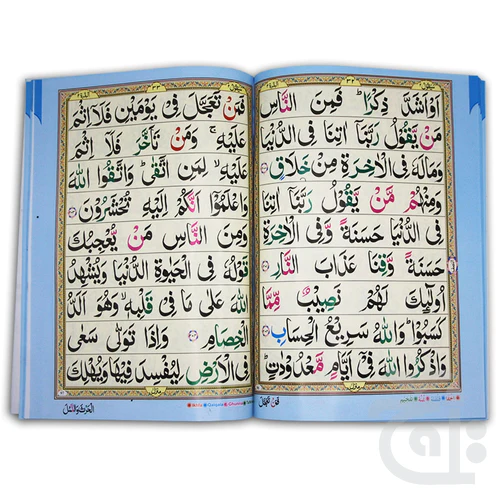 اَوْ اَشَدَّ ذِكْرًا ؕ فَمِنَ النَّاسِ
مَنْ يَّقُوْلُ رَبَّنَاۤ اٰتِنَا فِى الدُّنْيَا
وَمَا لَهٗ فِى الْاٰخِرَةِ مِنْ خَلَاقٍ
وَمِنْهُمْ مَّنْ يَّقُوْلُ رَبَّنَاۤ اٰتِنَا
فِى الدُّنْيَا حَسَنَةً وَّفِى الْاٰخِرَةِ
حَسَنَةً وَّقِنَا عَذَابَ النَّارِ
اُولٰٓئِكَ لَهُمْ نَصِيْبٌ مِّمَّا
كَسَبُوْا ؕ وَاللّٰهُ سَرِيْعُ الْحِسَابِ
وَاذْكُرُوا اللّٰهَ فِىْۤ اَيَّامٍ مَّعْدُوْدٰتٍ ؕ
فَمَنْ تَعَجَّلَ فِىْ يَوْمَيْنِ فَلَاۤ اِثْمَ
عَلَيْهِ ۚ وَمَنْ تَاَخَّرَ فَلَاۤ اِثْمَ
عَلَيْهِ ۙ لِمَنِ اتَّقٰى ؕ وَاتَّقُوا اللّٰهَ
وَاعْلَمُوْۤا اَنَّكُمْ اِلَيْهِ تُحْشَرُوْنَ
وَمِنَ النَّاسِ مَنْ يُّعْجِبُكَ
قَوْلُهٗ فِى الْحَيٰوةِ الدُّنْيَا وَيُشْهِدُ
اللّٰهَ عَلٰى مَا فِىْ قَلْبِهٖ ۙ وَهُوَ اَلَدُّ
الْخِصَامِ وَاِذَا تَوَلّٰى سَعٰى
فِى الْاَرْضِ لِيُفْسِدَ فِيْهَا وَيُهْلِكَ